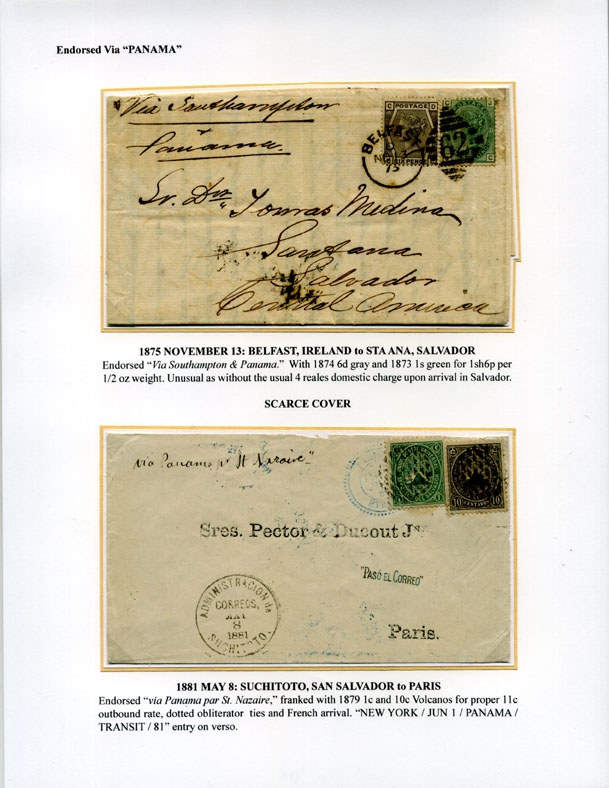 Endorsed Via “PANAMA”
Via Southampton
Panama.
C POSTAGE D
SIX PENCE
BELFAST
NO 13
75
62
C
Sr. Dn Tomas Medina
Santana
Salvador
Central America
1875 NOVEMBER 13: BELFAST, IRELAND to STA ANA, SALVADOR
Endorsed “Via Southampton & Panama.” With 1874 6d gray and 1873 1s green for 1sh6p per
1/2 oz weight. Unusual as without the usual 4 reales domestic charge upon arrival in Salvador.
SCARCE COVER
via Panama pr St Nazaire
10 10
Sres. Pector & Ducout Jne
"PASÓ EL CORREO"
ADMINISTRACION de
CORREOS,
MAY
8
1881
SUCHITOTO.
Paris.
1881 MAY 8: SUCHITOTO, SAN SALVADOR to PARIS
Endorsed “via Panama par St. Nazaire,” franked with 1879 1c and 10c Volcanos for proper 11c
outbound rate, dotted obliterator ties and French arrival. “NEW YORK / JUN 1 / PANAMA /
TRANSIT / 81” entry on verso.